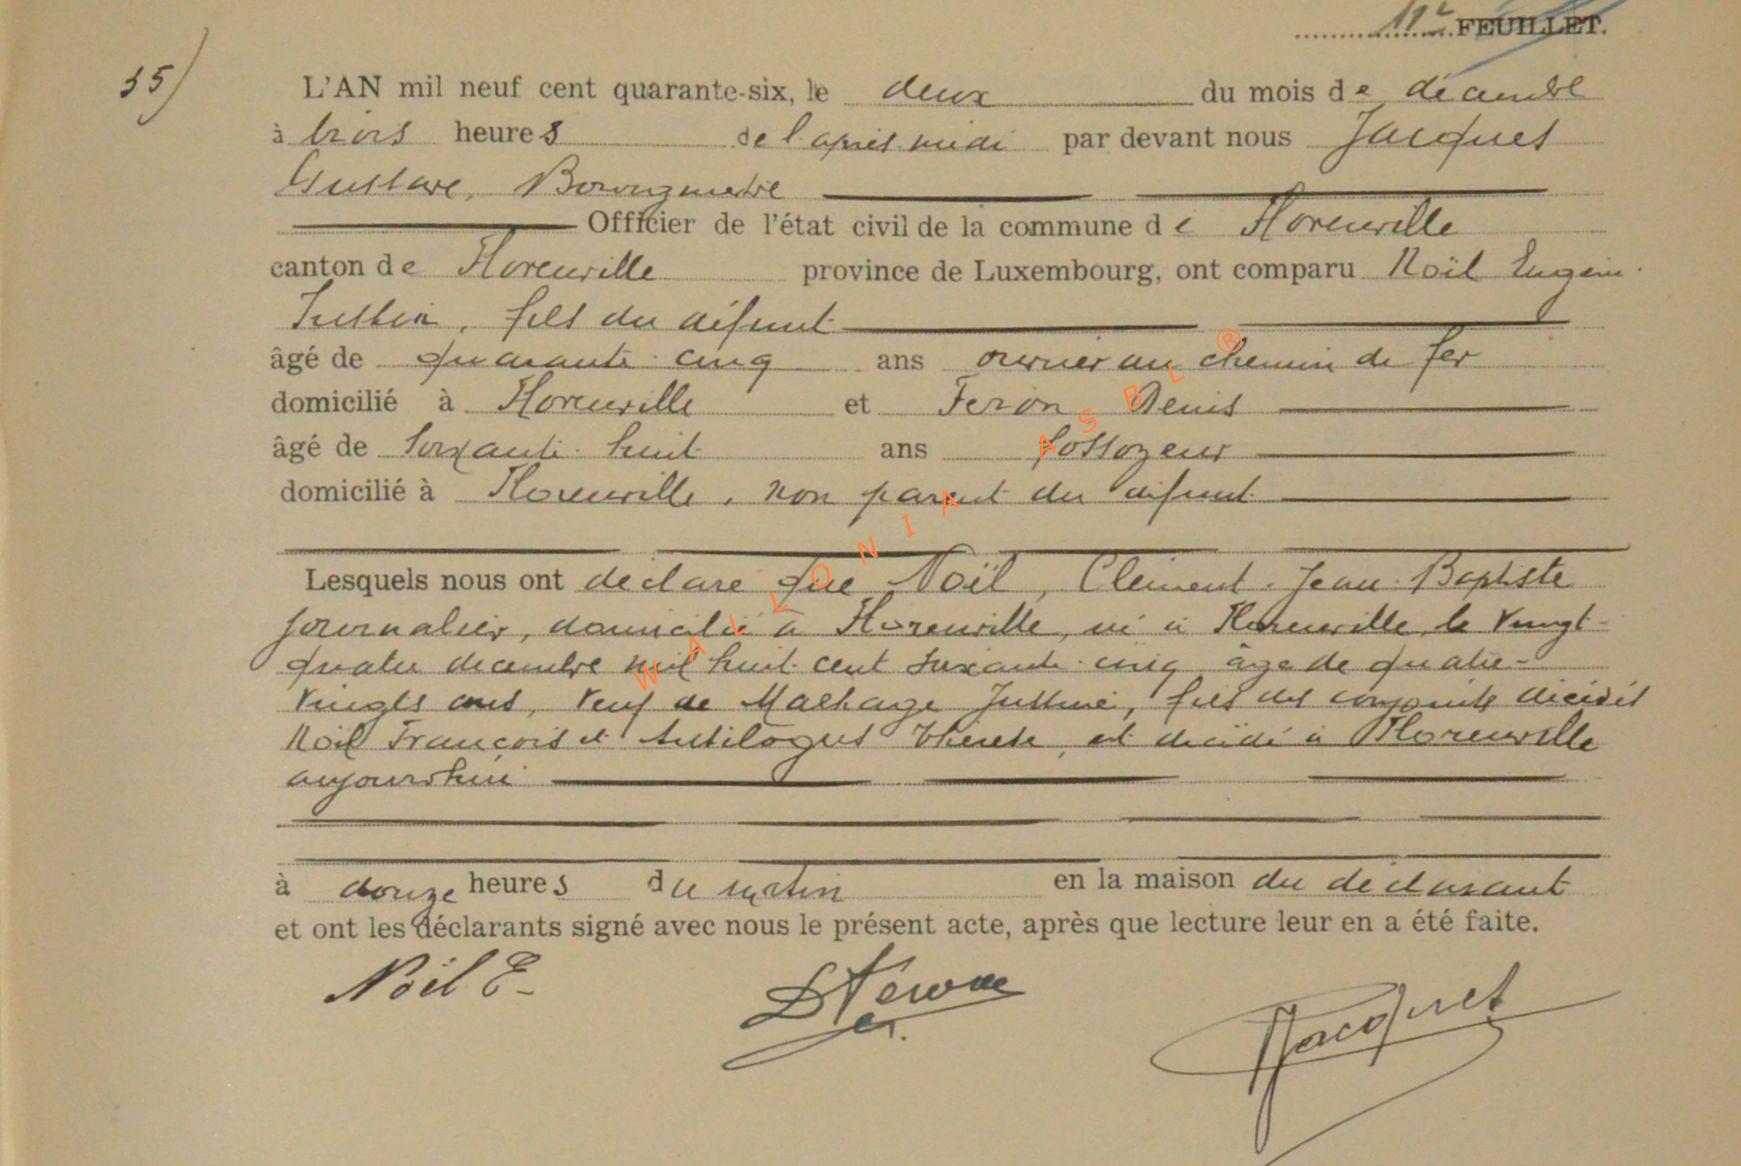 11e FEUILLET.
35)
L'AN mil neuf cent quarante-six, le deux du mois de décembre
à trois heures de l'après-midi par devant nous Jacques
Gustave, Bourgmestre
Officier de l'état civil de la commune de Florenville
canton de Florenville province de Luxembourg, ont comparu Noël Eugène
Justin, fils du défunt
âgé de quarante-cinq ans ouvrier au chemin de fer
domicilié à Florenville et Feron Denis
âgé de soixante-huit ans fossoyeur
domicilié à Florenville, non parent du défunt
Lesquels nous ont déclaré que Noël, Clément-Jean-Baptiste
journalier, domicilié à Florenville, né à Florenville, le vingt-
quatre décembre mil huit cent soixante-cinq âgé de quatre-
vingts ans, veuf de Justine, fils des conjoints décédés
Noël François et Thérèse, est décédé à Florenville
aujourd'hui
à douze heures du matin en la maison du déclarant
et ont les déclarants signé avec nous le présent acte, après que lecture leur en a été faite.
Noël E-
WALLONIA ASBL ®